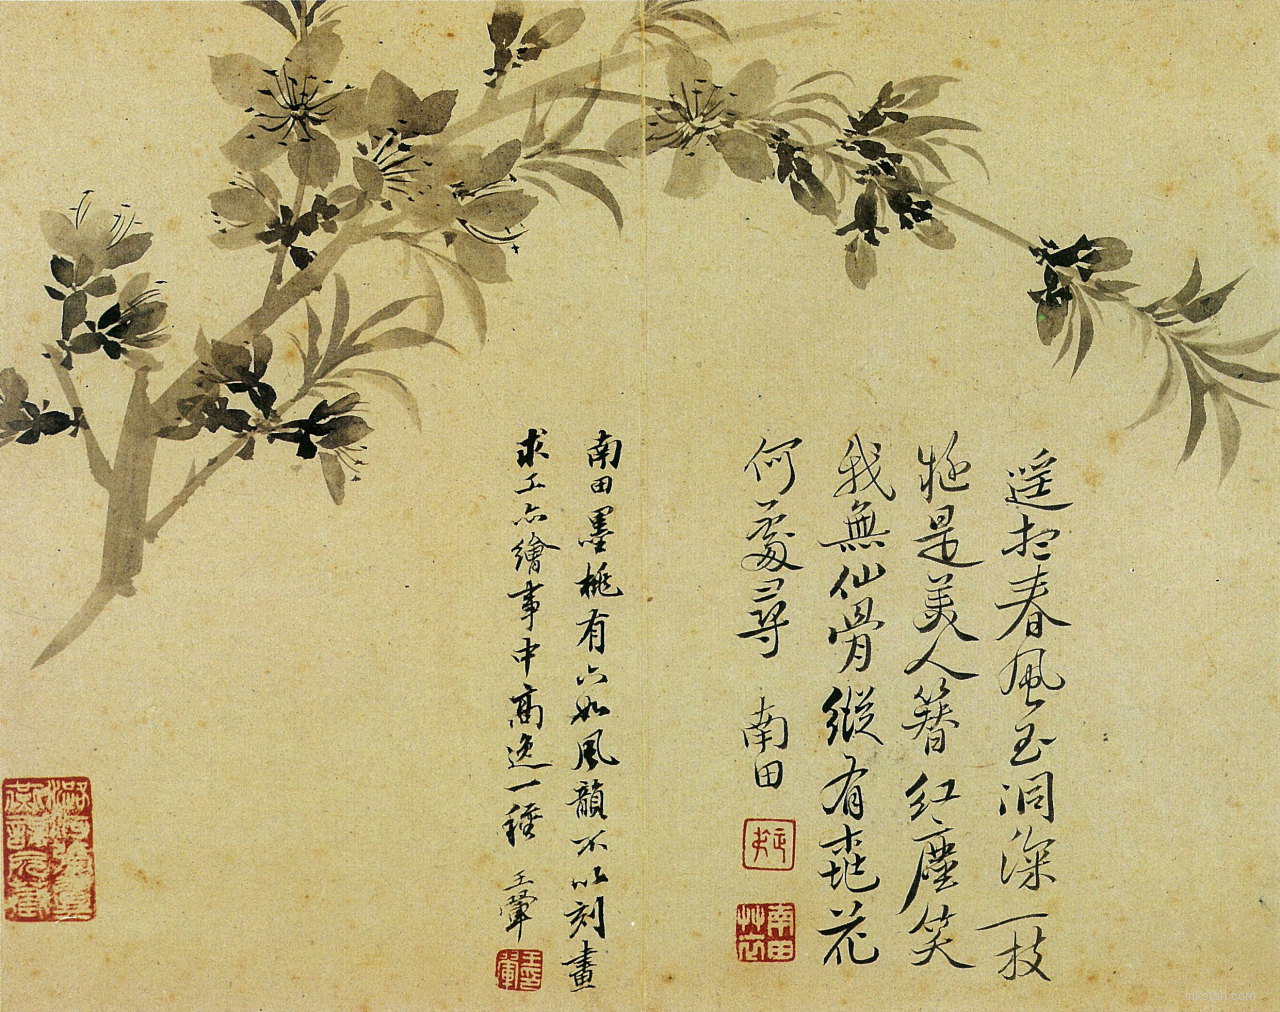 遥春風玉洞深一枝
是美人簪紅塵笑
我無仙骨縱有桃花
何處尋 南田
正叔
南田艸衣
南田墨桃有六如風韻不以刻畫
求工亦繪事中高逸一種 王翬
inkston.com